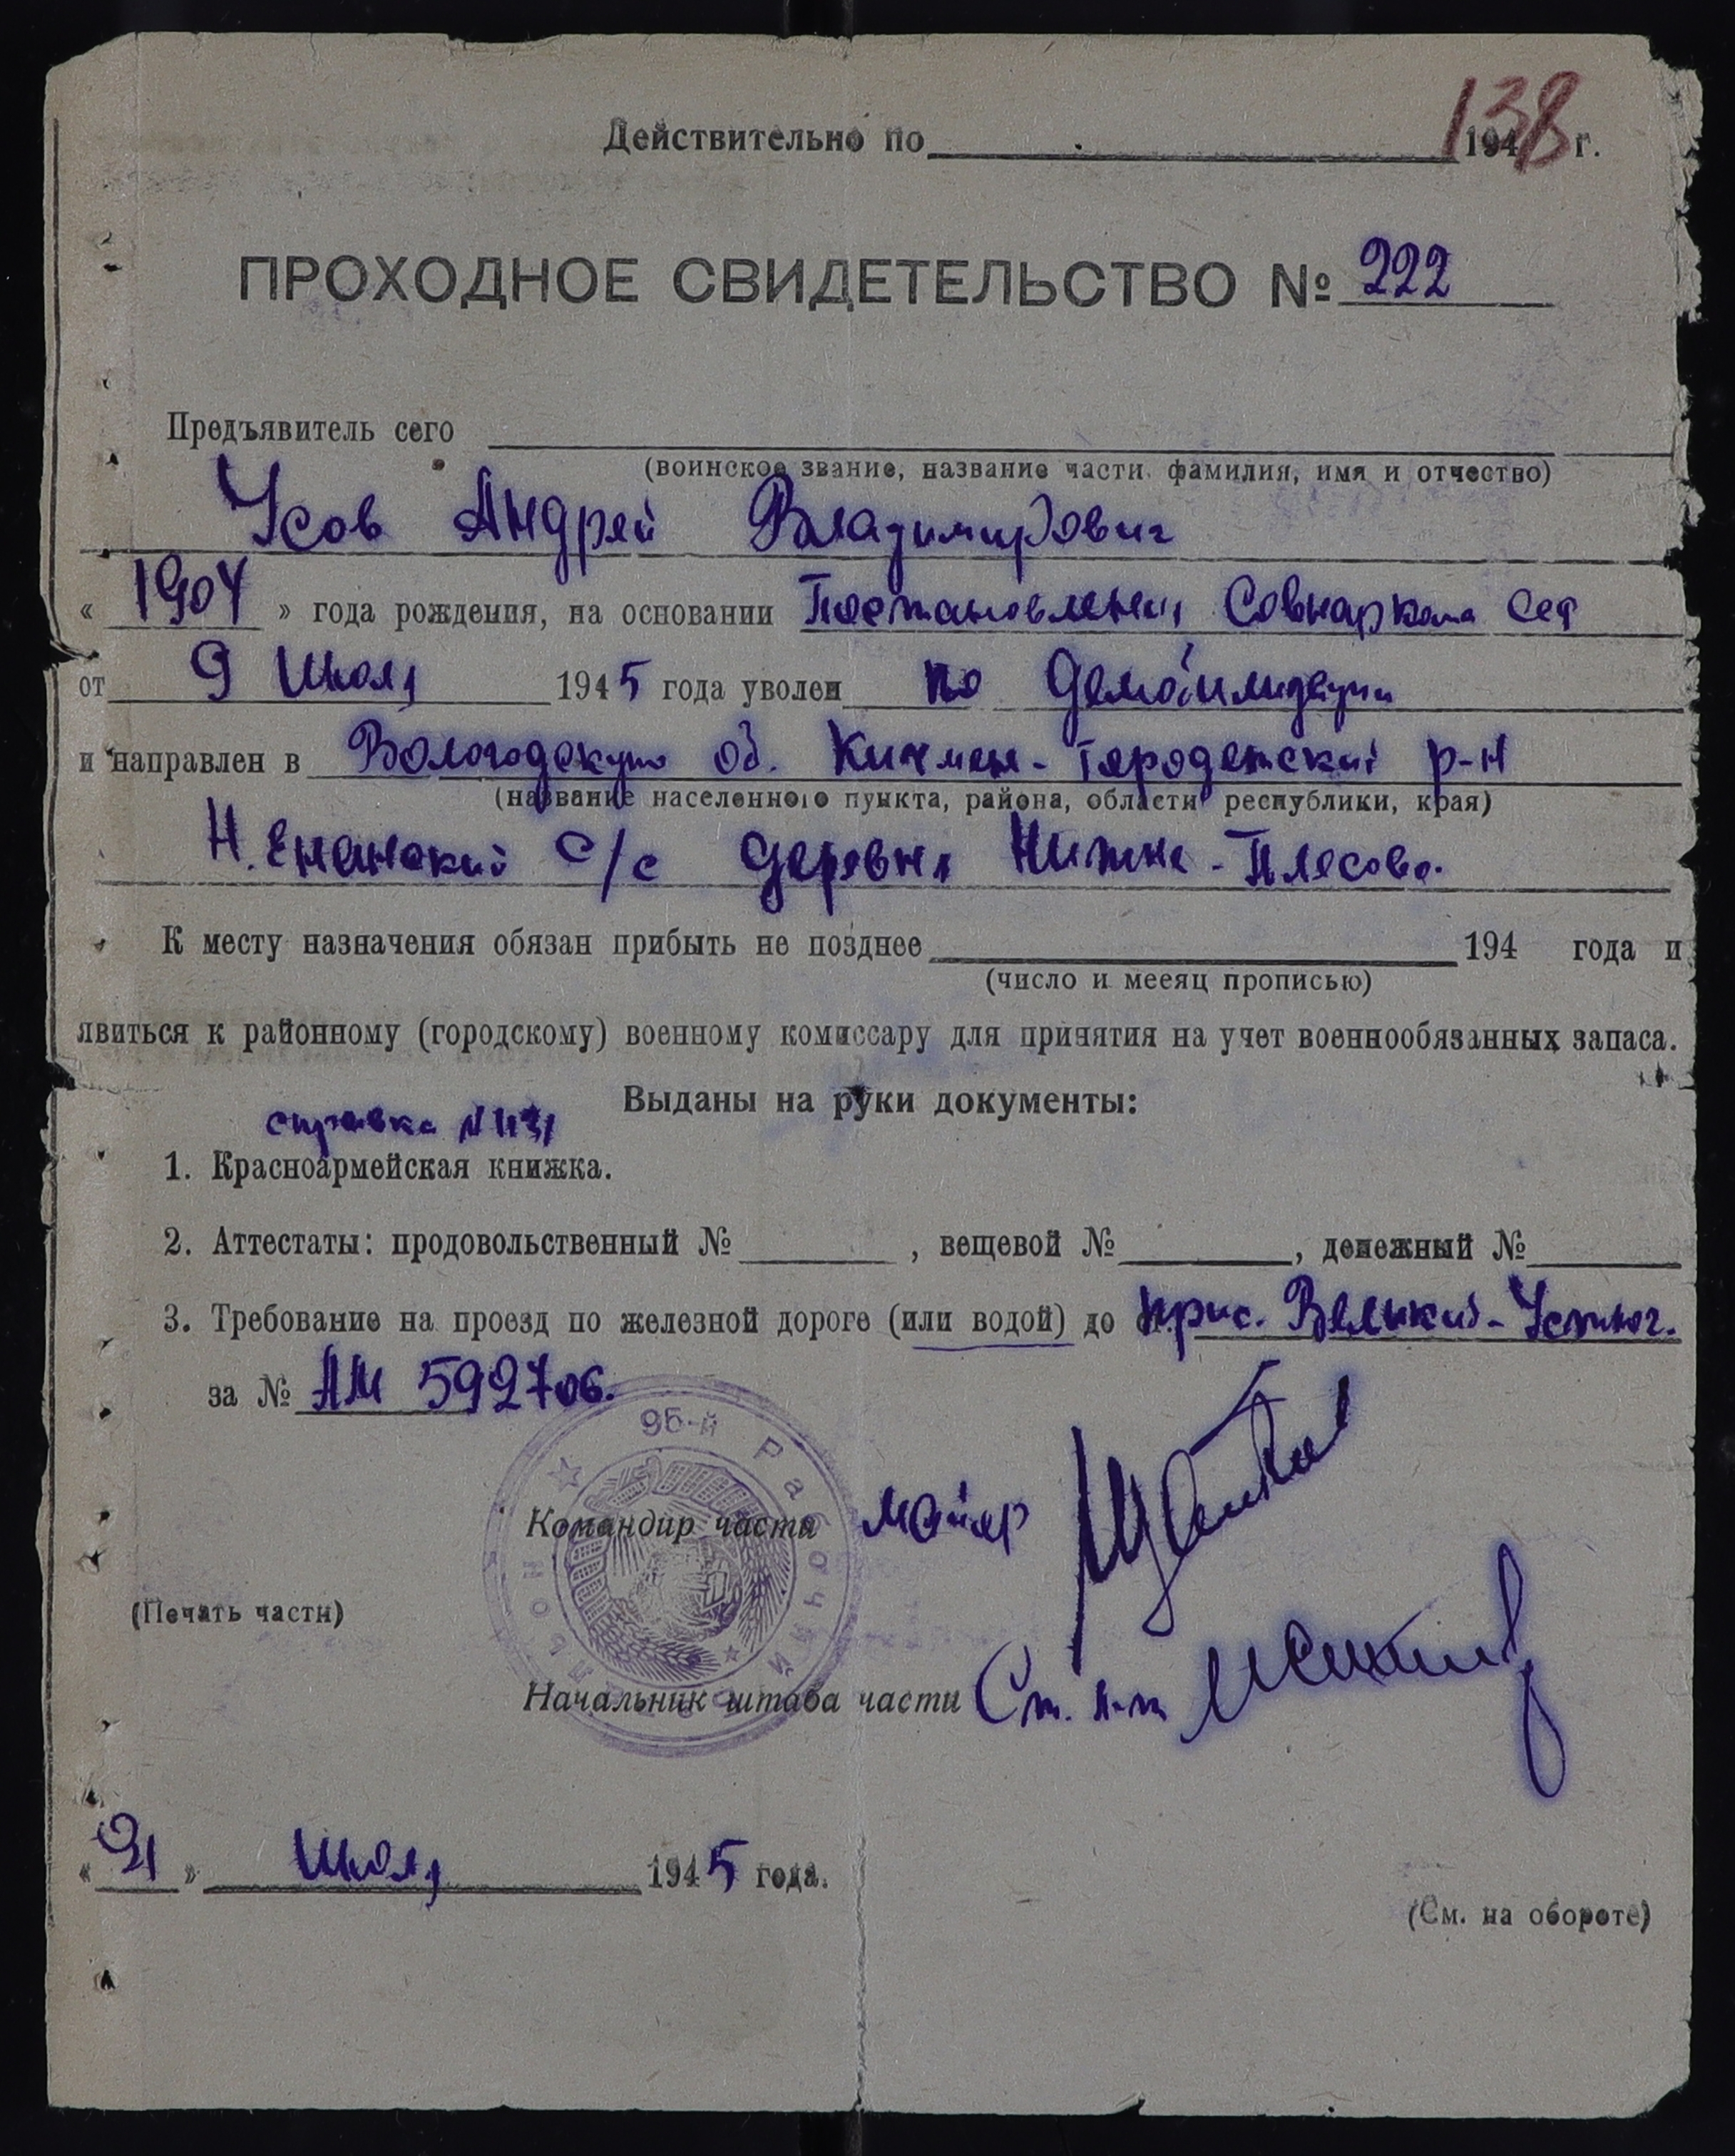 138
Действительно по 194 г.
ПРОХОДНОЕ СВИДЕТЕЛЬСТВО № 222
Предъявитель сего
(воинское звание, название части, фамилия, имя и отчество)
Усов Андрей Владимирович
« 1904 » года рождения, на основании Постановления Совнаркома
от 9 Июля 1945 года уволен по
и направлен в Вологодскую об. Кичмен-Городетский р-н
(название населенного пункта, района, области республики, края)
Н. Енанский с/с деревня Нижне-Плесово.
К месту назначения обязан прибыть не позднее 194 года и
(число и мееяц прописью)
явиться к районному (городскому) военному комиссару для принятия на учет военнообязанных запаса.
Выданы на руки документы:
справка N
1. Красноармейская книжка.
2. Аттестаты: продовольственный № , вещевой № , денежный №
3. Требование на проезд по железной дороге (или водой) до прис. Великий-Устюг.
за № АМ 592706.
96-й Рабочий
Командир части майор
(Печать части)
Начальник штаба части Ст. л-т
« 21 » Июля 1945 года.
(См. на обороте)